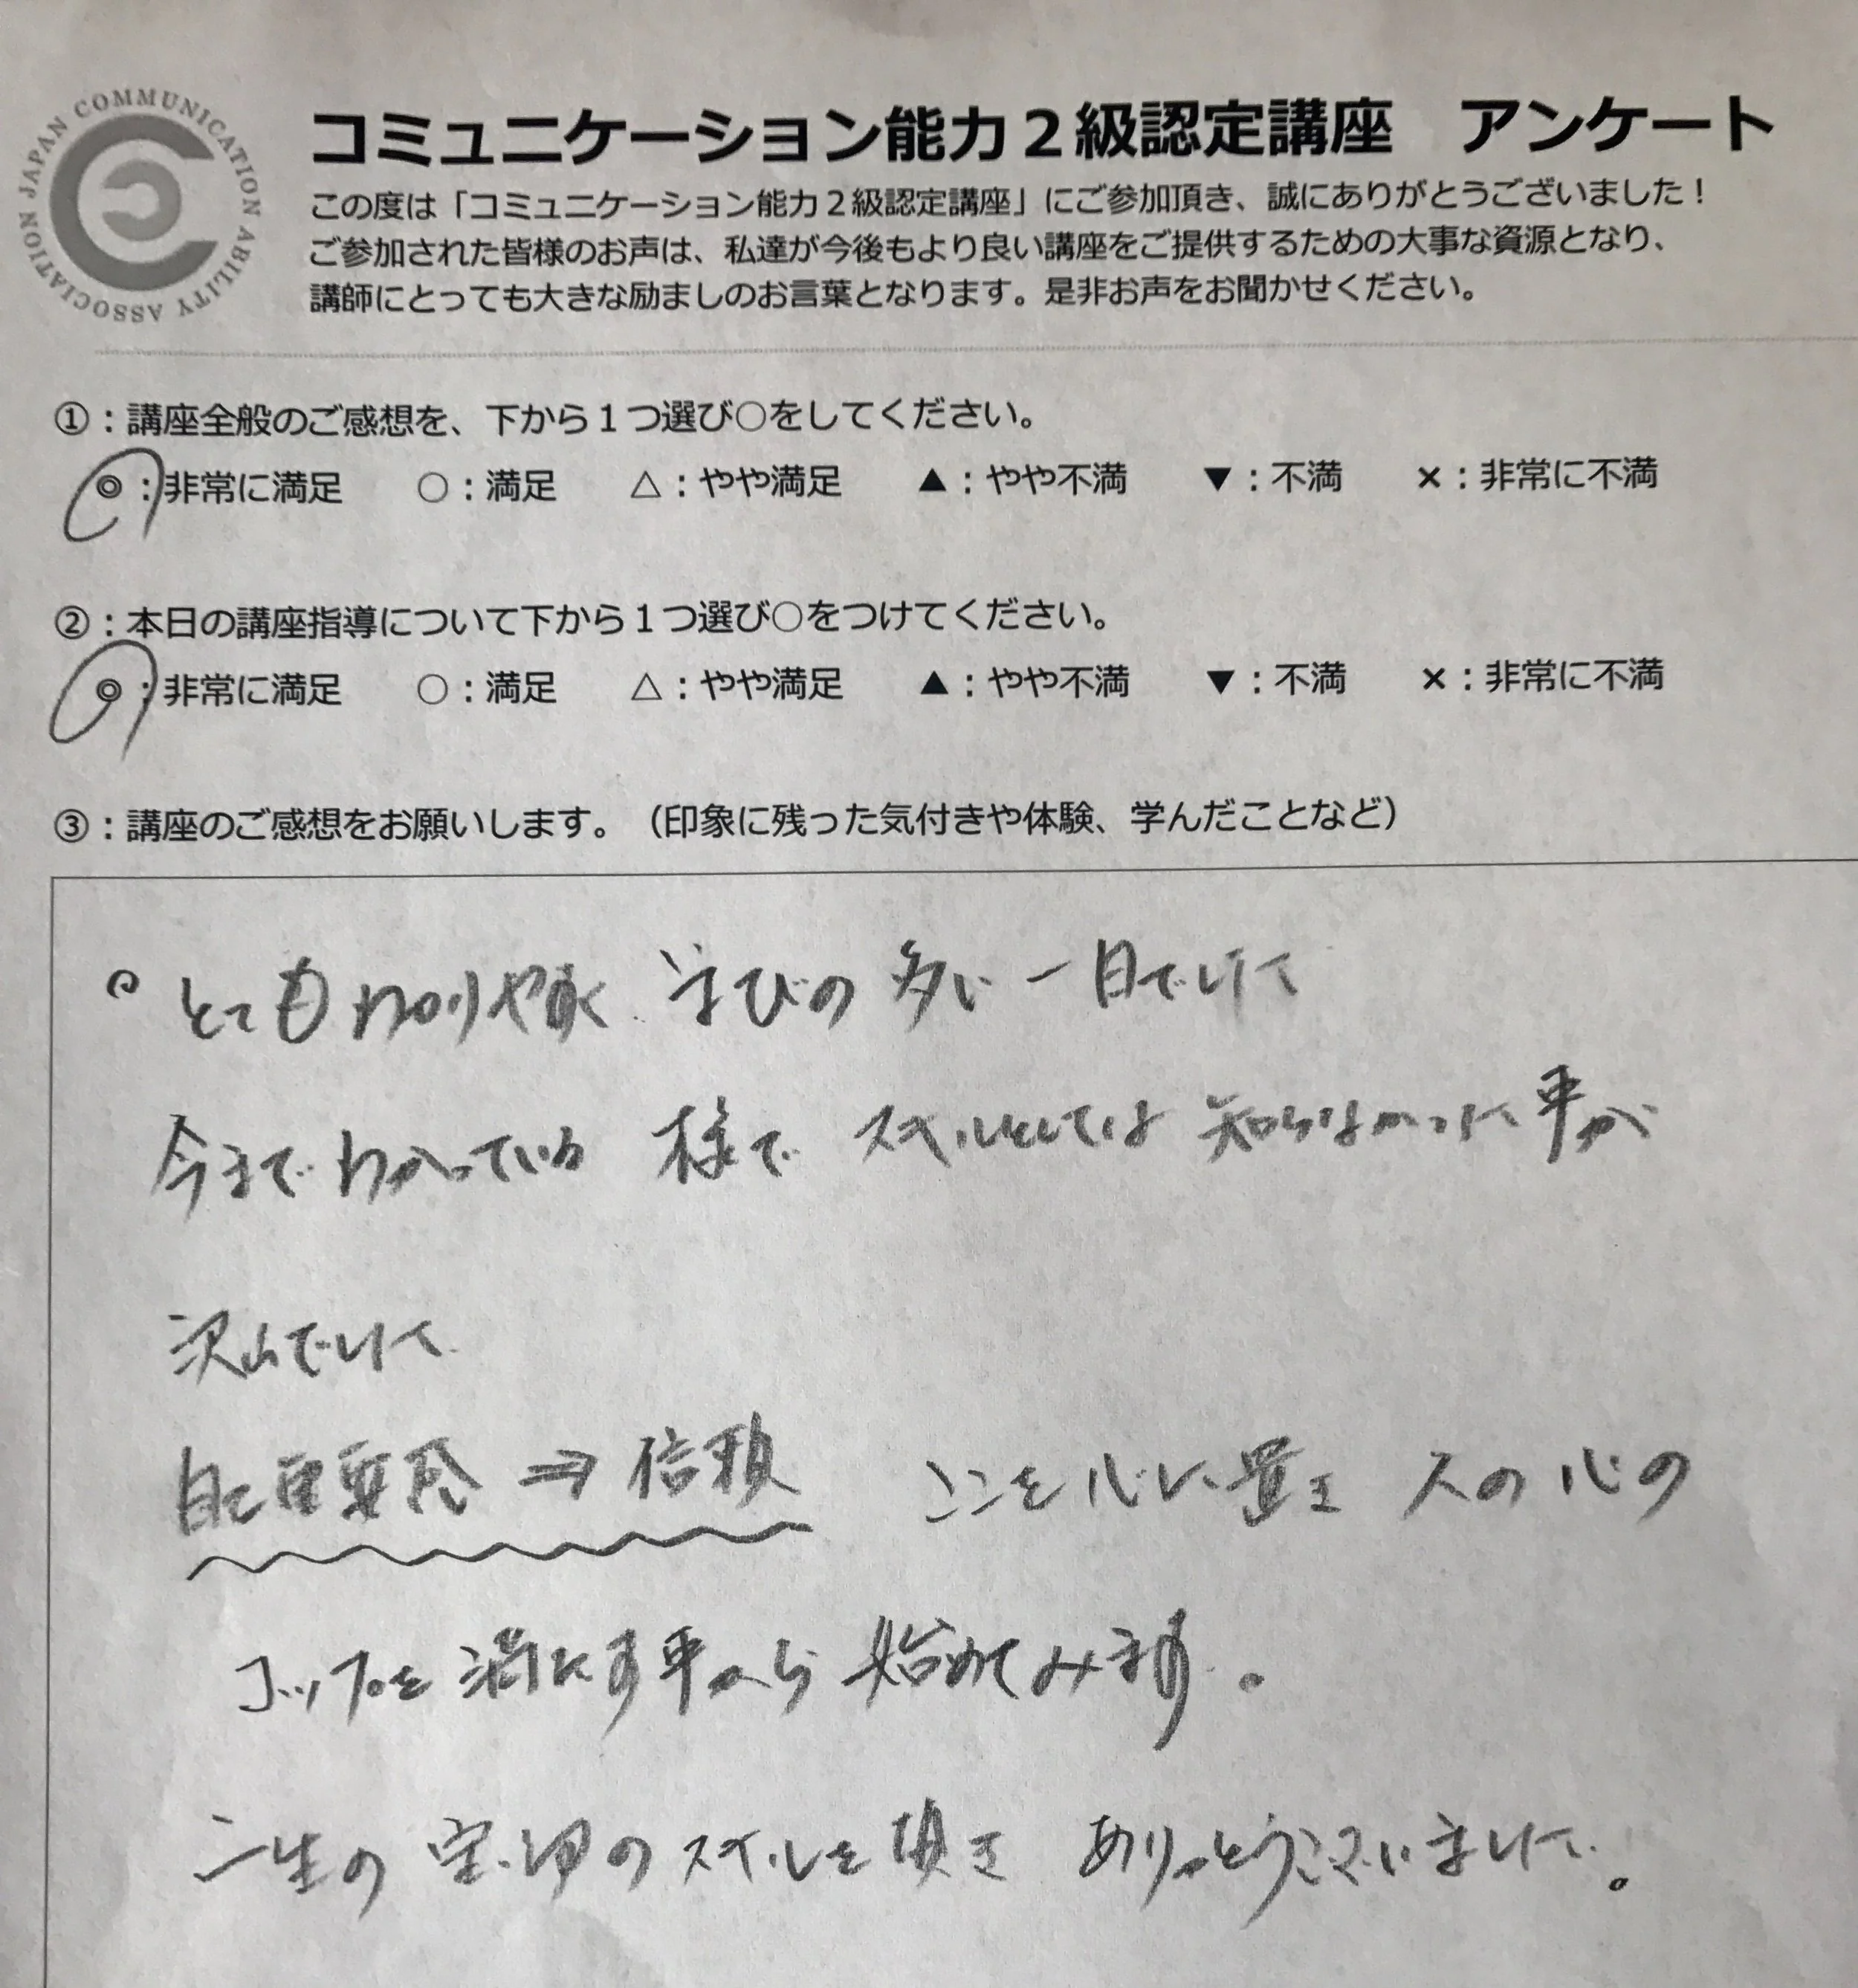 JAPAN COMMUNICATION ABILITY ASSOCIATION
コミュニケーション能力２級認定講座　アンケート
この度は「コミュニケーション能力２級認定講座」にご参加頂き、誠にありがとうございました！
ご参加された皆様のお声は、私達が今後もより良い講座をご提供するための大事な資源となり、
講師にとっても大きな励ましのお言葉となります。是非お声をお聞かせください。
①：講座全般のご感想を、下から１つ選び○をしてください。
◎：非常に満足　○：満足　△：やや満足　▲：やや不満　▼：不満　×：非常に不満
②：本日の講座指導について下から１つ選び○をつけてください。
◎：非常に満足　○：満足　△：やや満足　▲：やや不満　▼：不満　×：非常に不満
③：講座のご感想をお願いします。（印象に残った気付きや体験、学んだことなど）
○とてもわかりやすく 学びの多い一日でした
今までわかっている様で スキルとしては知らなかった事が
沢山でした
自己重要感⇒信頼 ここを心に置き 人の心の
コップを満たす事から始めてみます。
一生の のスキルを頂き ありがとうございました。